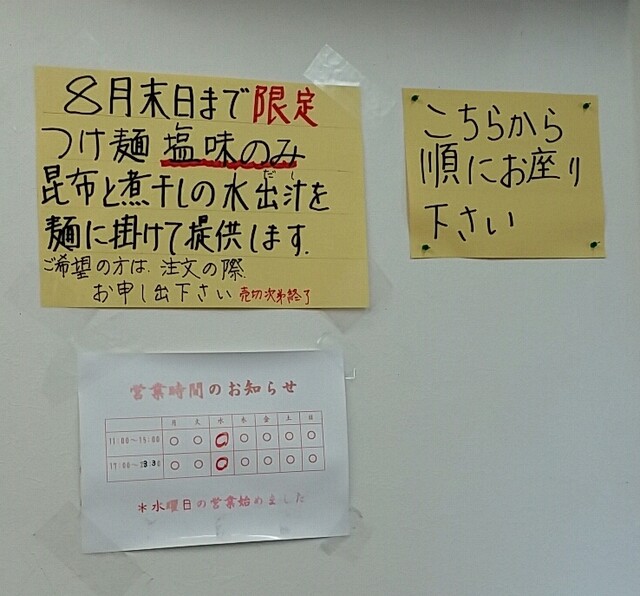 8月末日まで限定
つけ麺 塩味のみ
昆布と煮干しの水出汁を
だし
麺に掛けて提供します.
ご希望の方は、注文の際
お申し出下さい 売切次第終了
こちらから
順にお座り
下さい
営業時間のお知らせ
月 火 水 木 金 土 日
11:00~15:00 ○ ○ ○ ○ ○ ○ ○
○ ○ ○ ○ ○ ○ ○
*水曜日の営業始めました